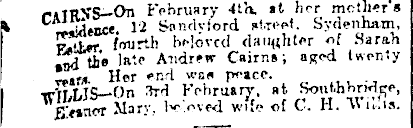 CAIRNS—On February 4th, at her mother's
residence, 12 Sandyford street, Sydenham,
Esther, fourth beloved daughter of Sarah
and the late Andrew Cairns; aged twenty
years. Her end was peace.
WILLIS—On 3rd February, at Southbridge,
Eleanor Mary, beloved wife of C. H. Willis.